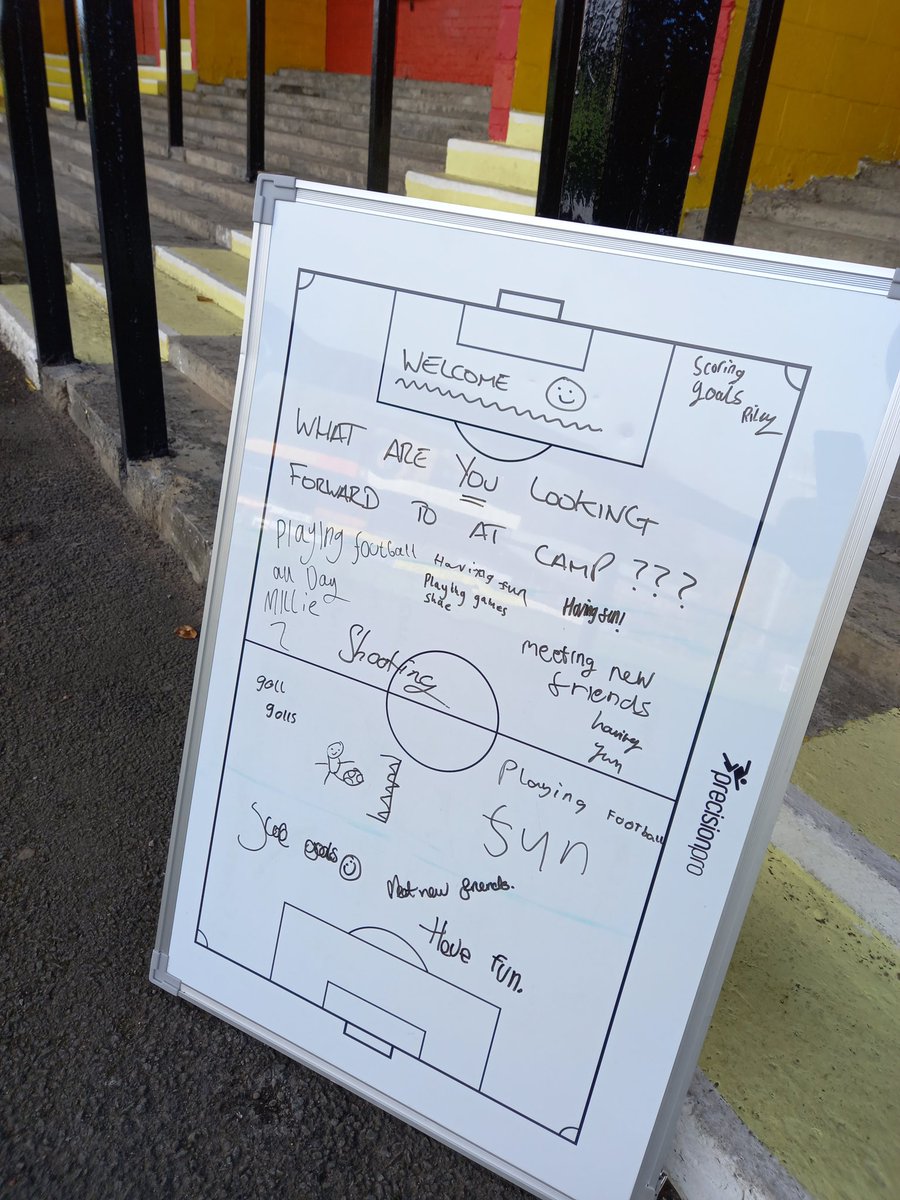 WELCOME
Scoring
goals
Riley
WHAT ARE YOU LOOKING
FORWARD TO AT CAMP ???
Playing football
all Day
Millie
Having fun
Playing games
Having fun!
Shooting
meeting new
friends
having
fun
goll
golls
Playing FOOTBALL
fun
goals
Meet new friends.
Have fun.
precisionpro